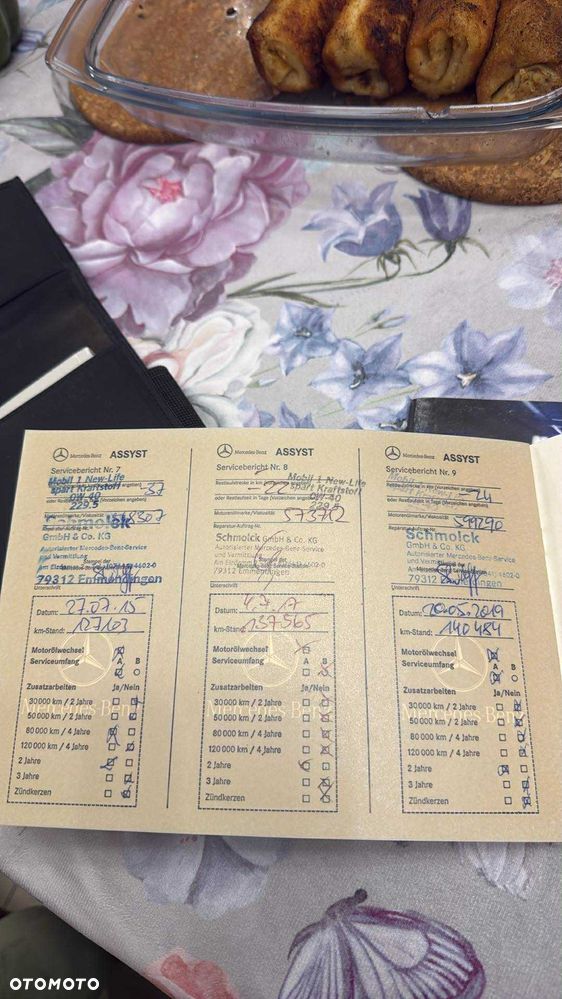 Mercedes-Benz ASSYST
Servicebericht Nr. 7
Mobil 1 New-Life
spart Kraftstoff
0W-40
229.5
37
oder Restlaufzeit in Tage (Vorzeichen angeben)
Motorenölmarke/Viskosität
Schmolck
GmbH & Co. KG
Autorisierter Mercedes-Benz-Service
und Vermittlung
79312 Emmendingen
Unterschrift
Datum: 27.07.15
km-Stand: 127103
Motorölwechsel
Serviceumfang A B
Zusatzarbeiten Ja/Nein
30 000 km / 2 Jahre
50 000 km / 2 Jahre
80 000 km / 4 Jahre
120 000 km / 4 Jahre
2 Jahre
3 Jahre
Zündkerzen
Mercedes-Benz ASSYST
Servicebericht Nr. 8
Mobil 1 New-Life
spart Kraftstoff
0W-40
229.5
Restlaufstrecke in km
22
oder Restlaufzeit in Tage (Vorzeichen angeben)
Motorenölmarke/Viskosität
573712
Reparatur-Auftrag-Nr.
Schmolck
GmbH & Co. KG
Autorisierter Mercedes-Benz-Service
und Vermittlung
79312 Emmendingen
Unterschrift
Datum: 4.7.17
km-Stand: 137565
Motorölwechsel
Serviceumfang A B
Zusatzarbeiten Ja/Nein
30 000 km / 2 Jahre
50 000 km / 2 Jahre
80 000 km / 4 Jahre
120 000 km / 4 Jahre
2 Jahre
3 Jahre
Zündkerzen
Mercedes-Benz ASSYST
Servicebericht Nr. 9
Mobil
24
oder Restlaufzeit in Tage (Vorzeichen angeben)
Motorenölmarke/Viskosität
599290
Reparatur-Auftrag-Nr.
Schmolck
GmbH & Co. KG
Autorisierter Mercedes-Benz-Service
und Vermittlung
79312
Unterschrift
Datum: 20.05.2019
km-Stand: 140484
Motorölwechsel
Serviceumfang A B
Zusatzarbeiten Ja/Nein
30 000 km / 2 Jahre
50 000 km / 2 Jahre
80 000 km / 4 Jahre
120 000 km / 4 Jahre
2 Jahre
3 Jahre
Zündkerzen
Mercedes-Benz
OTOMOTO